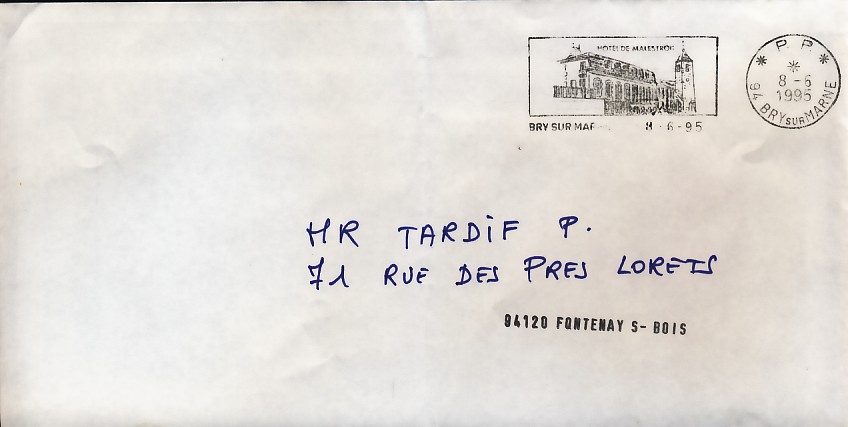 HOTEL DE MALESTROIT
BRY SUR MAR 8-6-95
* P. P. *
*
8-6
1995
94 BRY SUR MARNE
MR TARDIF P.
71 RUE DES PRES LORETS
94120 FONTENAY S-BOIS